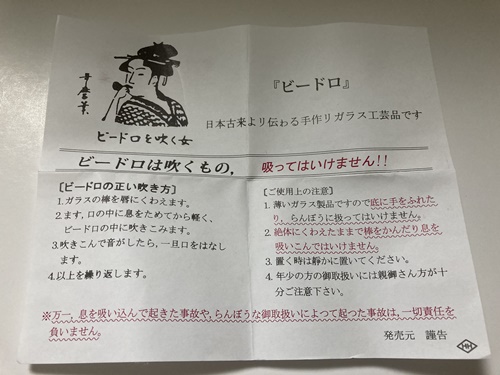 『ビードロ』
日本古来より伝わる手作りガラス工芸品です
哥麿筆
ビードロを吹く女
ビードロは吹くもの, 吸ってはいけません!!
[ビードロの正い吹き方]
1.ガラスの棒を唇にくわえます。
2.ます, 口の中に息をためてから軽く、
ビードロの中に吹きこみます。
3.吹きこんで音がしたら、一旦口をはなし
ます。
4.以上を繰り返します。
[ご使用上の注意]
1. 薄いガラス製品ですので底に手をふれた
り、らんぼうに扱ってはいけません。
2. 絶体にくわえたままで棒をかんだり息を
吸いこんではいけません。
3. 置く時は静かに置いてください。
4. 年少の方の御取扱いには親御さん方が十
分ご注意下さい。
※万一, 息を吸い込んで起きた事故や, らんぼうな御取扱いによつて起った事故は, 一切責任を
負いません。
発売元 謹告
HH